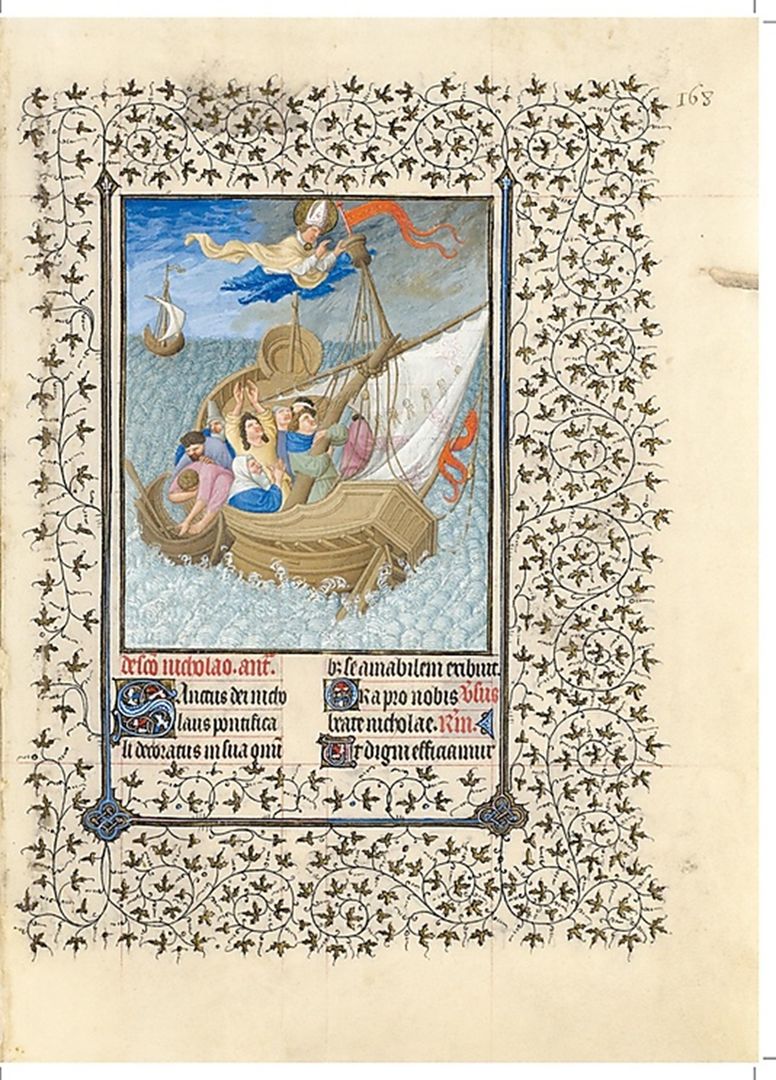 168
de sc̄o nicholao. ant̄.
Sanctus dei nicho
laus pontifica
li decoratus in sua om̄i
bꝫ se amabilem exibuit.
Ora pro nobis
beate nicholae.
Ut digni efficiamur